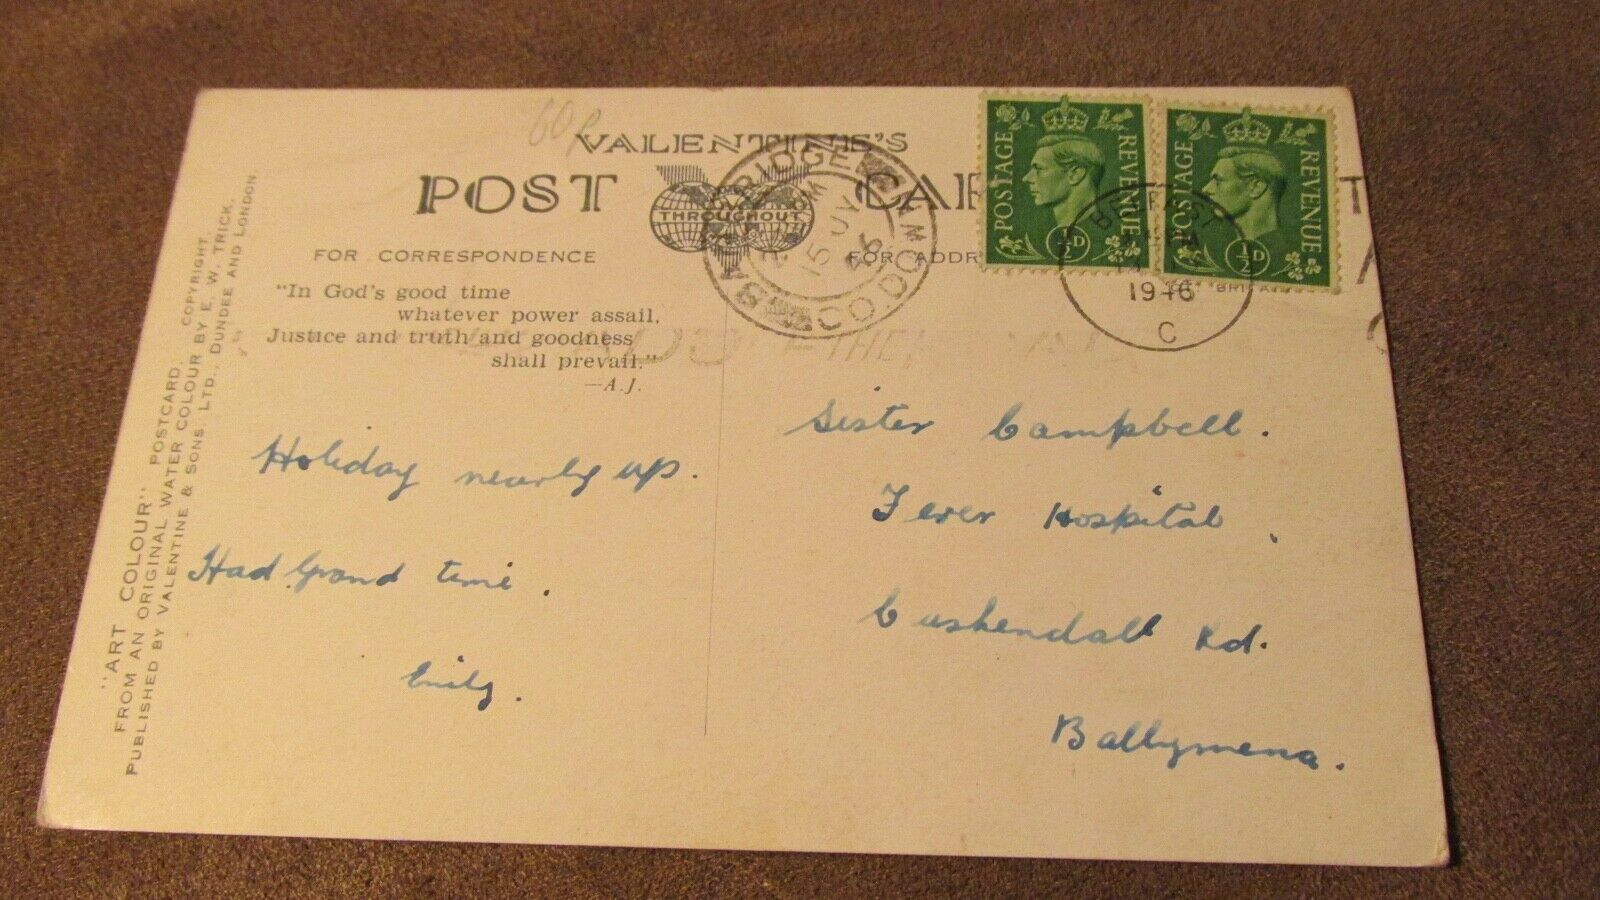 60p
VALENTINE'S
POST CAR
THROUGHOUT
FOR CORRESPONDENCE
FOR ADDR
"In God's good time
whatever power assail,
Justice and truth and goodness
shall prevail."
—A.J.
Holiday nearly up.
Had Grand time.
Emily.
Sister Campbell.
Fever Hospital,
Cushendall Rd.
Ballymena.
POSTAGE REVENUE
½D
POSTAGE REVENUE
½D
BRIDGE
15 JY
46
CO DOWN
BELFAST
1946
C
"ART COLOUR" POSTCARD.
FROM AN ORIGINAL WATER COLOUR BY E. W. TRICK.
PUBLISHED BY VALENTINE & SONS, LTD., DUNDEE AND LONDON.
COPYRIGHT.